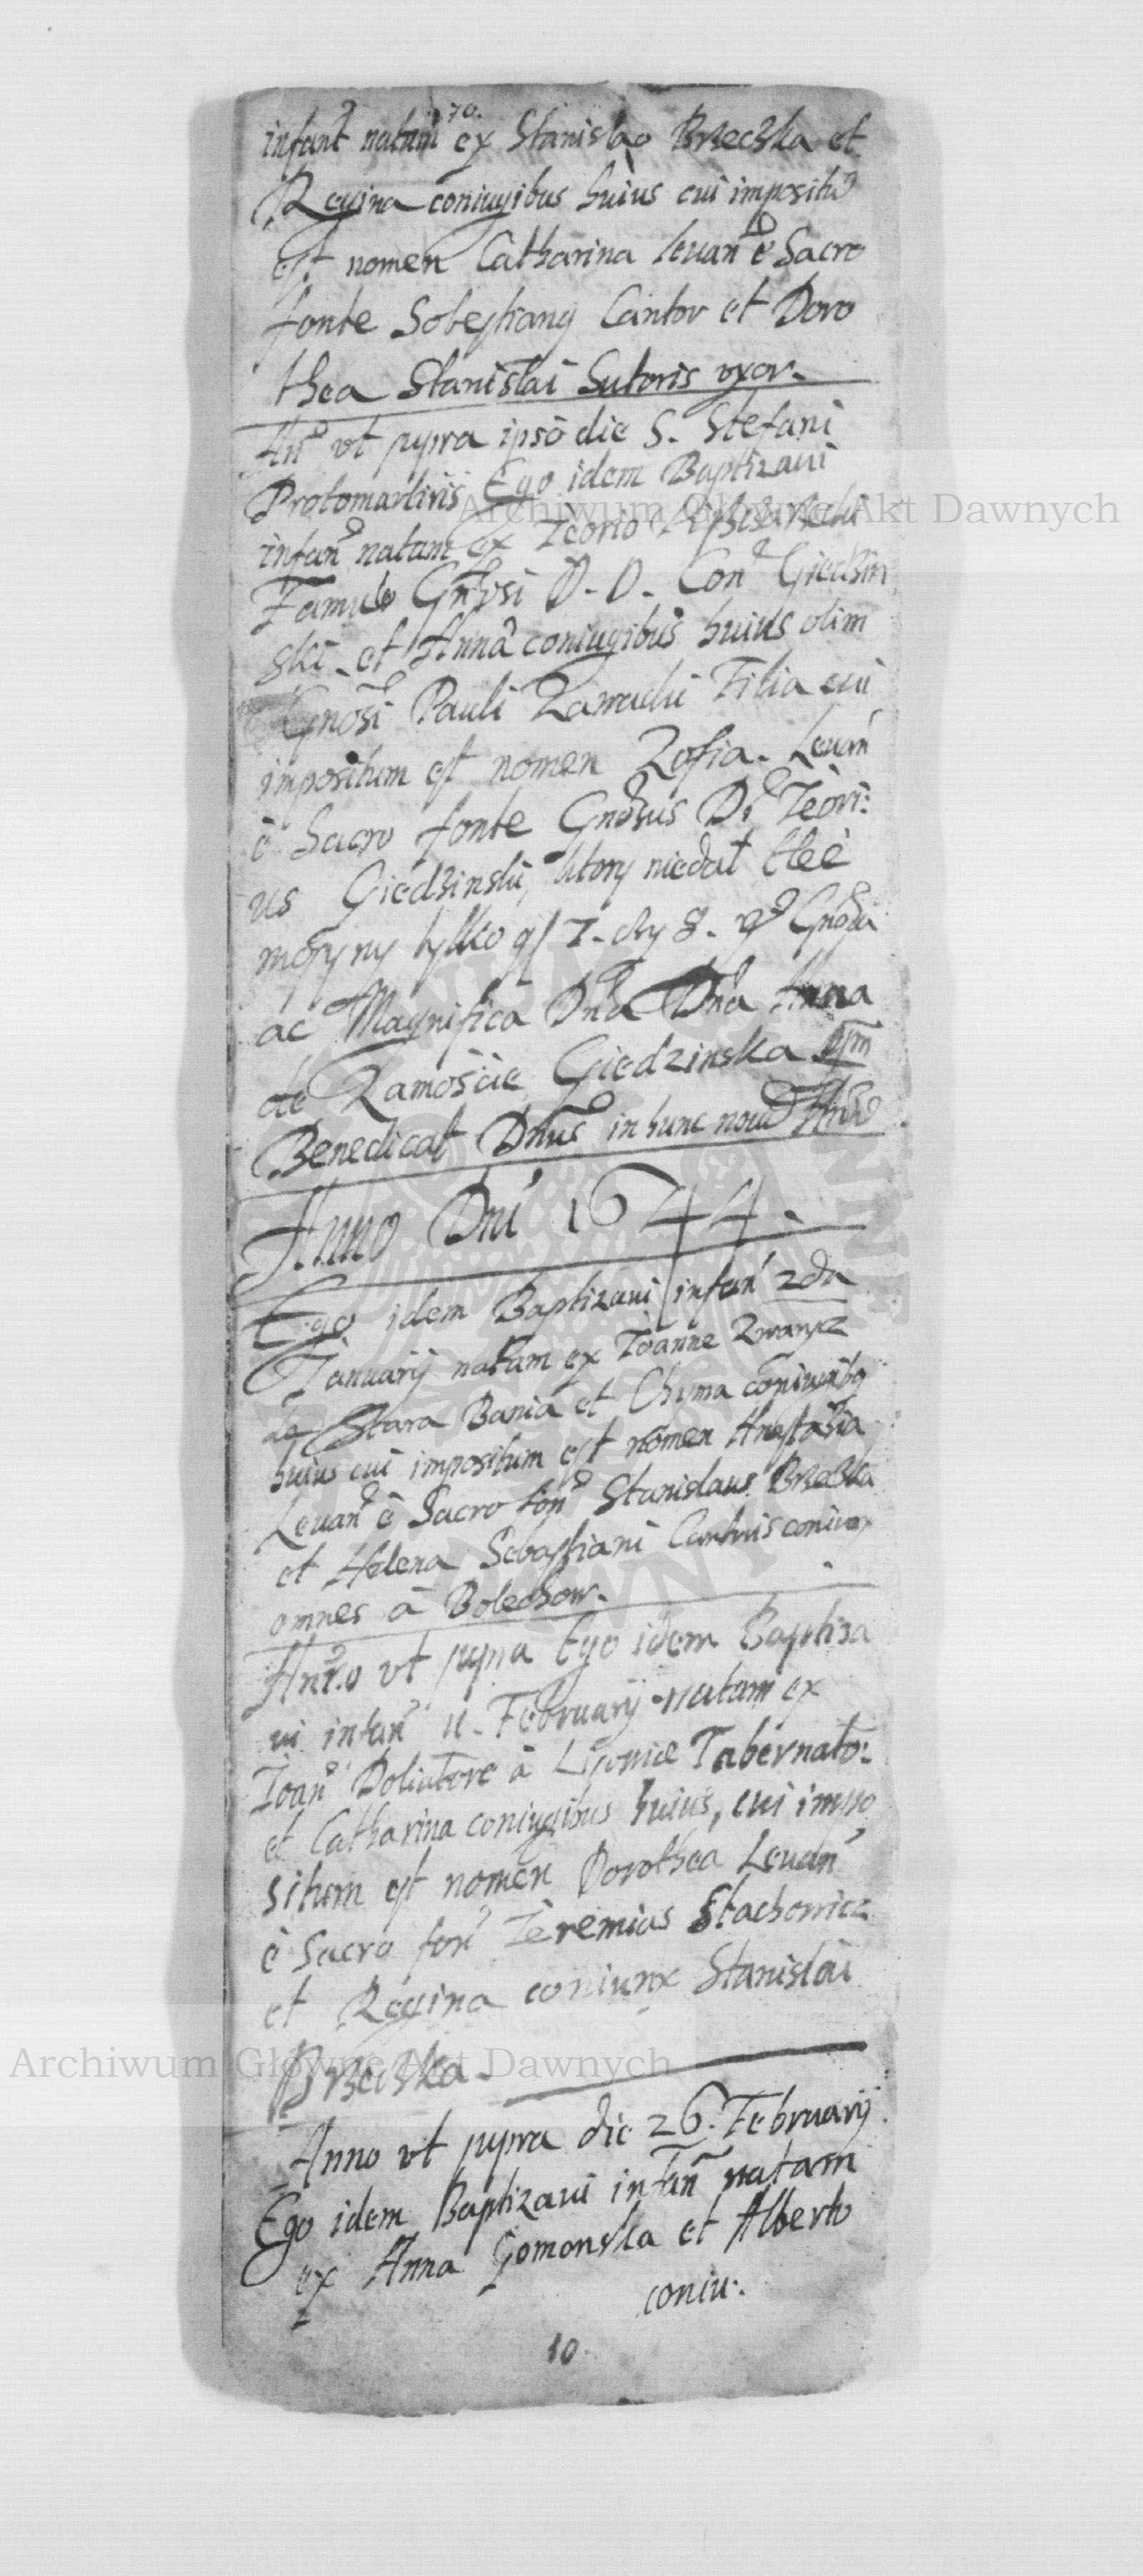 70.
infant natam ex Stanislao Brzeczka et
Regina coniugibus huius cui impositũ
est nomen Catharina levan̄ è Sacro
fonte Sobestiany Cantor et Doro
thea Stanislai Sutoris vxor.
Añ vt supra ipso die S. Stefani
Protomartiris Ego idem Baptizavi
infan̄ natam ex
Famulo Gn̄osi D. D. Con̄ Giedzin
ski et Anna coniugibus huius olim
Gnosi Pauli Zawadii Filia cui
impositum est nomen Zofia. Levan̄
è Sacro fonte Gnosus Ds Teori:
us Giedzinski, ktory niedał
tylko 7. 8. Gnosa
ac Magnifica Dna Dna Anna
de Zamoście Giedzinska
Benedicat Dnus in hunc novũ Annũ
Anno Dni 1644.
Ego idem Baptizavi infan̄ 2da
Ianuarij natam ex Ioanne Zwarycz
de Stara Bania et Chyma coniugibq
huius cui impositum est nomen Anastasia
Levan̄ è Sacro fon̄ Stanislaus Brzeczka
et Helena Sebastiani Cantoris coniux
omnes à Bolechow.
Anno vt supra Ego idem Baptiza
vi infan̄ 11. February natam ex
Ioan̄ Doliatore à Tabernato:
et Catharina coniugibus huius, cui impo
situm est nomen Dorothea Levan̄
è Sacro fon̄ Ieremias Stachowicz
et Regina coniunx Stanislai
Brzeczka.
Anno vt supra die 26. February
Ego idem Baptizavi infan̄ natam
ex Anna Gomonska et Alberto
coniu:
10
Archiwum Główne Akt Dawnych
Archiwum Główne Akt Dawnych